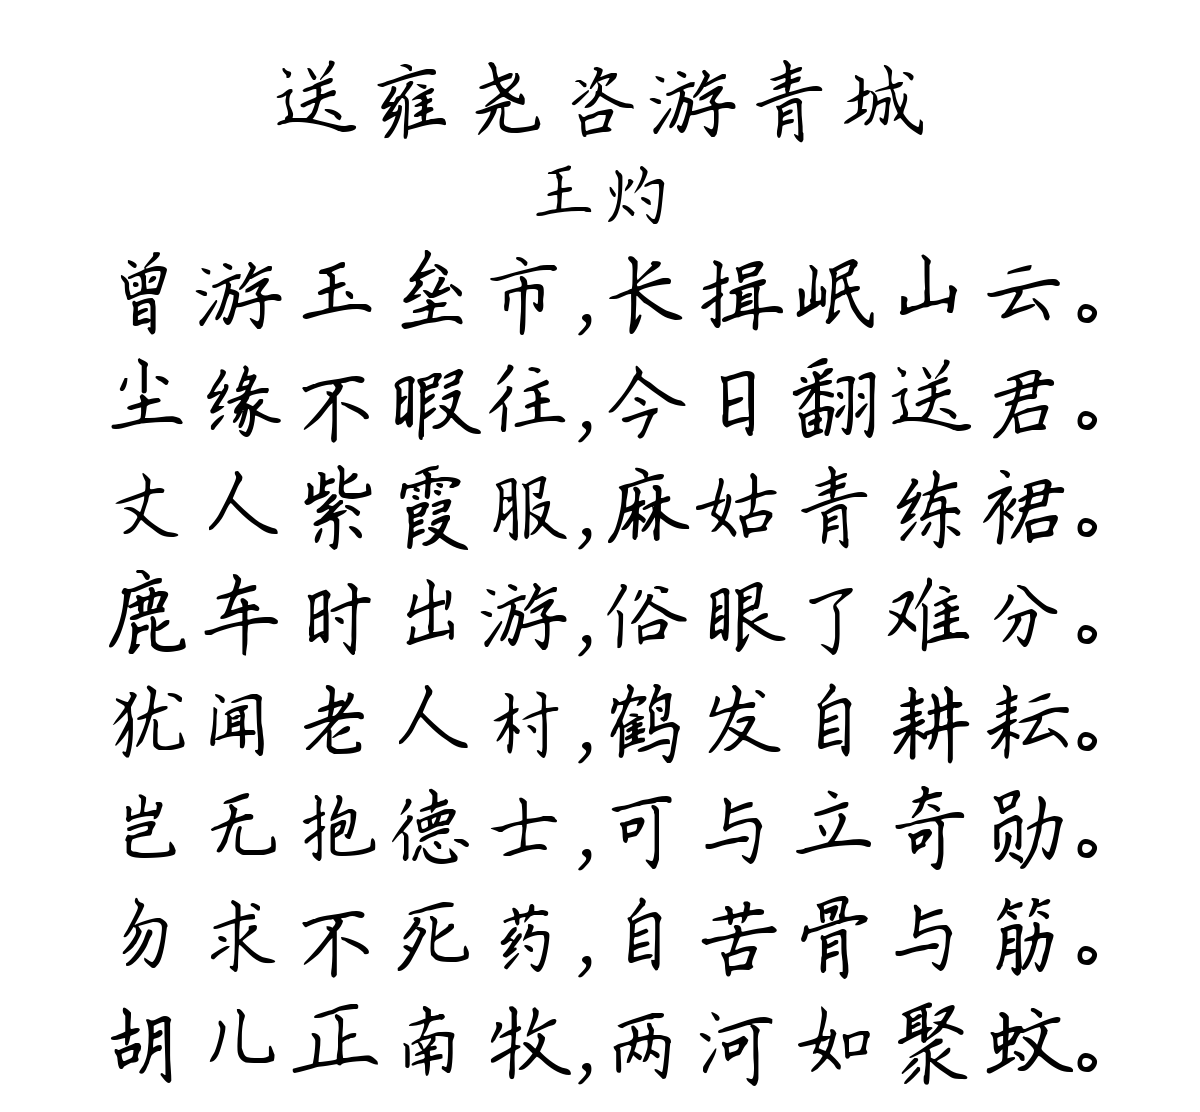 送雍尧咨游青城
王灼
曾游玉垒市,长揖岷山云。
尘缘不暇往,今日翻送君。
丈人紫霞服,麻姑青练裙。
鹿车时出游,俗眼了难分。
犹闻老人村,鹤发自耕耘。
岂无抱德士,可与立奇勋。
勿求不死药,自苦骨与筋。
胡儿正南牧,两河如聚蚊。